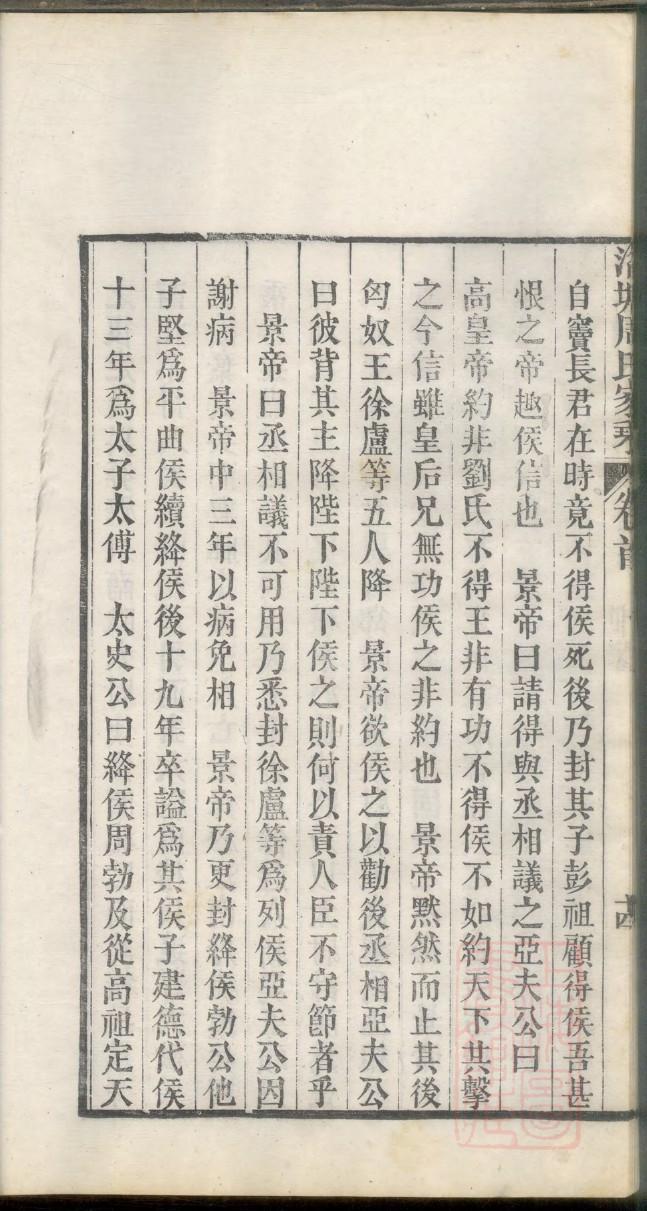 周氏家乘 卷首
自竇長君在時竟不得侯死後乃封其子彭祖顧得侯吾甚
恨之帝趣侯信也 景帝曰請得與丞相議之亞夫公曰
高皇帝約非劉氏不得王非有功不得侯不如約天下共擊
之今信雖皇后兄無功侯之非約也 景帝默然而止其後
匈奴王徐盧等五人降 景帝欲侯之以勸後丞相亞夫公
曰彼背其主降陛下陛下侯之則何以責人臣不守節者乎
景帝曰丞相議不可用乃悉封徐盧等爲列侯亞夫公因
謝病 景帝中三年以病免相 景帝乃更封絳侯勃公他
子堅爲平曲侯續絳侯後十九年卒謚爲其侯子建德代侯
十三年爲太子太傅 太史公曰絳侯周勃及從高祖定天